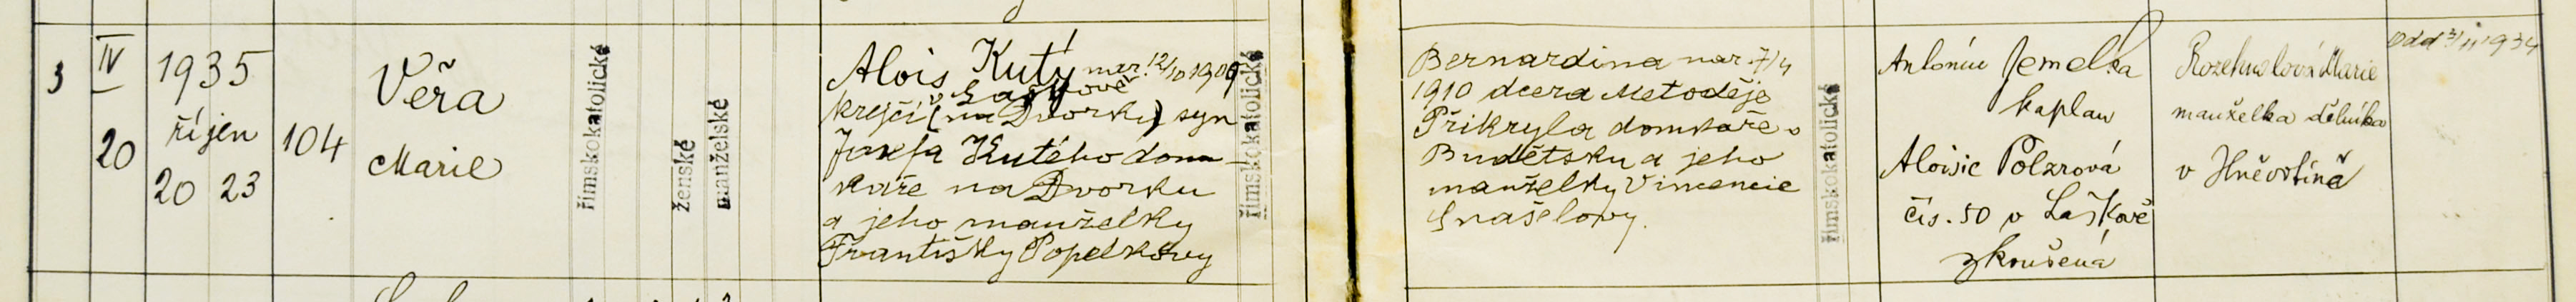 3
IV
20
1935
říjen
20 23
104
Věra
Marie
římskokatolické
ženské
manželské
Alois Kutý nar. 12/10 1909
v Laškově
krejčí (na Dvorku) syn
Josefa Kutého dom-
kaře na Dvorku
a jeho manželky
Františky Popelkovy
římskokatolické
Bernardina nar. 7/4
1910 dcera Metoděje
Přikryla domkaře v
Budětsku a jeho
manželky Vincencie
Snašelovy.
římskokatolické
Antonín Jemelka
kaplan
Aloisie Polzrová
čís. 50 v Laškově
zkoušená
Marie
manželka dělníka
v Hněvotíně
Odd 3/11 1934